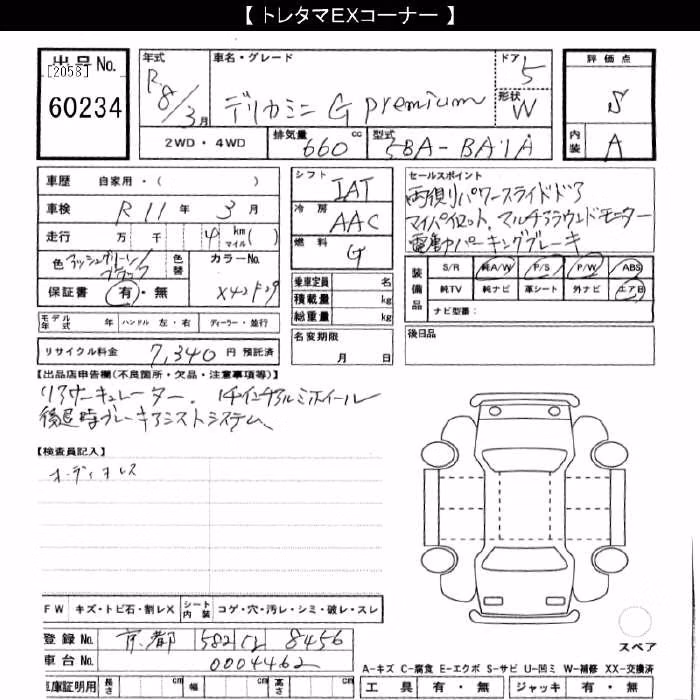 【 トレタマEXコーナー 】
出品No.
[2058]
60234
年式
R8/3月
車名・グレード
デリカミニ G premium
ドア
5
形状
W
評価点
S
内装
A
2WD・4WD
排気量
660 cc
型式
5BA-BA1A
車歴 自家用・( )
車検 R11年 3月
走行 万 千 4 km マイル( )
色 アッシュグリーン/ブラック
色替
カラーNo.
X42
保証書 有・無
シフト
IAT
冷房
AAC
燃料
G
乗車定員 名
積載量 kg
総重量 kg
セールスポイント
両側パワースライドドア
マイパイロット、マルチアラウンドモニター
電動パーキングブレーキ
装備品
S/R 純A/W P/S P/W ABS
純TV 純ナビ 革シート 外ナビ エアB
ナビ型番:
モデル年式 年 ハンドル 左・右 ディーラー・並行
リサイクル料金 7,340 円 預託済
名変期限
月 日
後日品
【出品店申告欄(不良箇所・欠品・注意事項等)】
リアサーキュレーター、14インチアルミホイール
後退時ブレーキアシストシステム、
【検査員記入】
オーディオレス
FW キズ・トビ石・割レX シート内装 コゲ・穴・汚レ・シミ・破レ・スレ
登録No. 京都 582 8456
車台No. 0004462
車庫証明用 長さ cm 幅 cm 高さ cm
スペア
A-キズ C-腐食 E-エクボ S-サビ U-凹ミ W-補修 XX-交換済
工具 有・無 ジャッキ 有・無